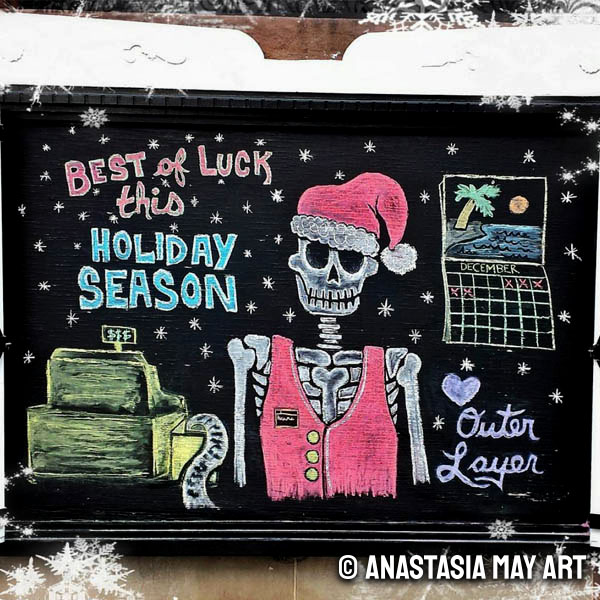 BEST of LUCK
this
HOLIDAY
SEASON
$$$
DECEMBER
Outer
Layer
© ANASTASIA MAY ART